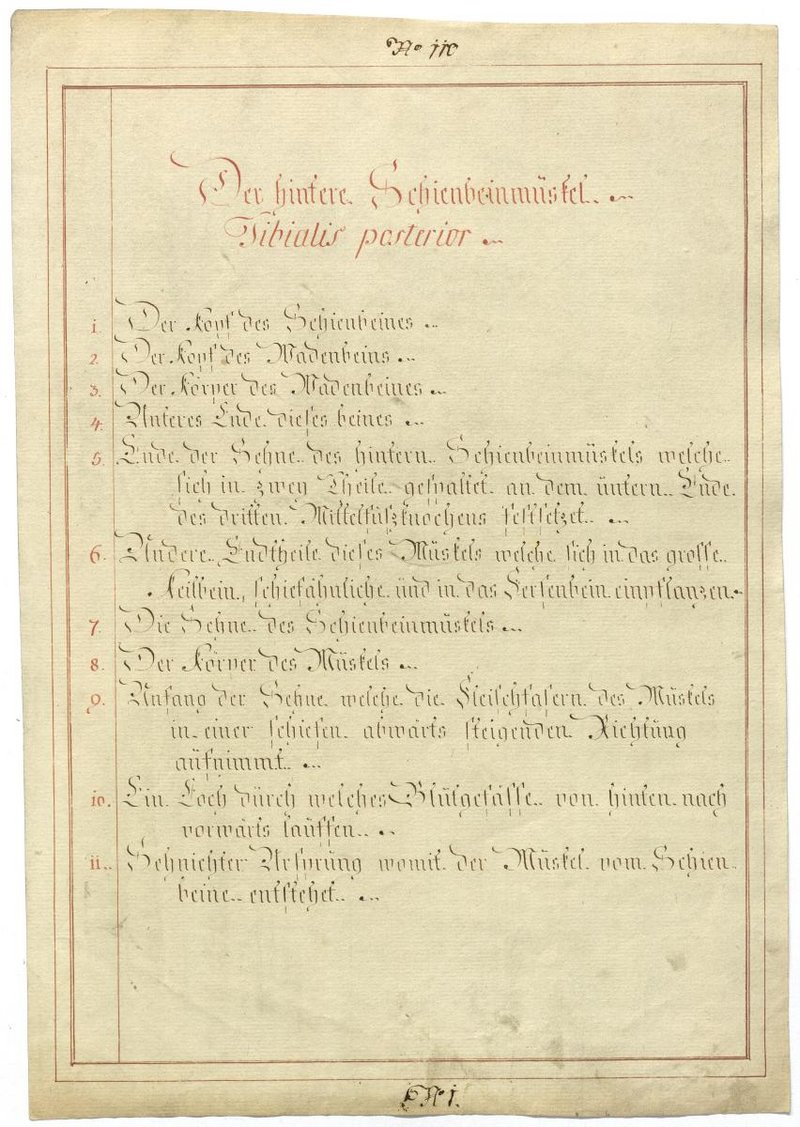 No 110
Der hintere Schienbeinmüskel.
Tibialis posterior
1. Der Kopf des Schienbeines
2. Der Kopf des Wadenbeins
3. Der Körper des Wadenbeines
4. Unteres Ende dieses beines
5. Ende der Sehne des hintern Schienbeinmüskels welche
sich in zwey Theile gespaltet an dem üntern Ende
des dritten Mittelfüßknochens festsetzet.
6. Andere Endtheile dieses Müskels welche sich in das grosse
Keilbein, schiefähnliche ünd in das Fersenbein einpflanzen.
7. Die Sehne des Schienbeinmüskels
8. Der Körper des Müskels
9. Anfang der Sehne welche die Fleischfasern des Müskels
in einer schiefen abwärts steigenden Richtüng
aüfnimmt.
10. Ein Loch dürch welches Blütgefässe von hinten nach
vorwärts lauffen.
11. Sehnichter Ursprüng womit der Müskel vom Schien
beine entstehet.
No 1.